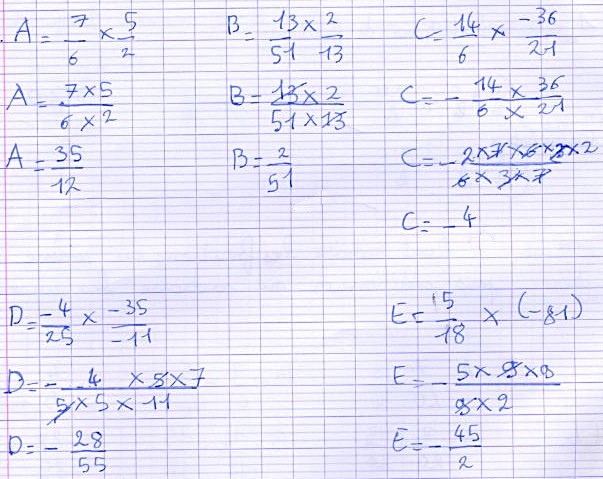 A = 7/6 × 5/2
A = 7×5 / 6×2
A = 35/12
B = 13/51 × 2/13
B = 13×2 / 51×13
B = 2/51
C = 14/6 × -36/21
C = - 14 × 36 / 6 × 21
C = - 2×7×6×3×2 / 6×3×7
C = - 4
D = -4/25 × -35/-11
D = - 4 ×5×7 / 5×5×11
D = - 28/55
E = 5/18 × (-81)
E = - 5×9×9 / 9×2
E = - 45/2